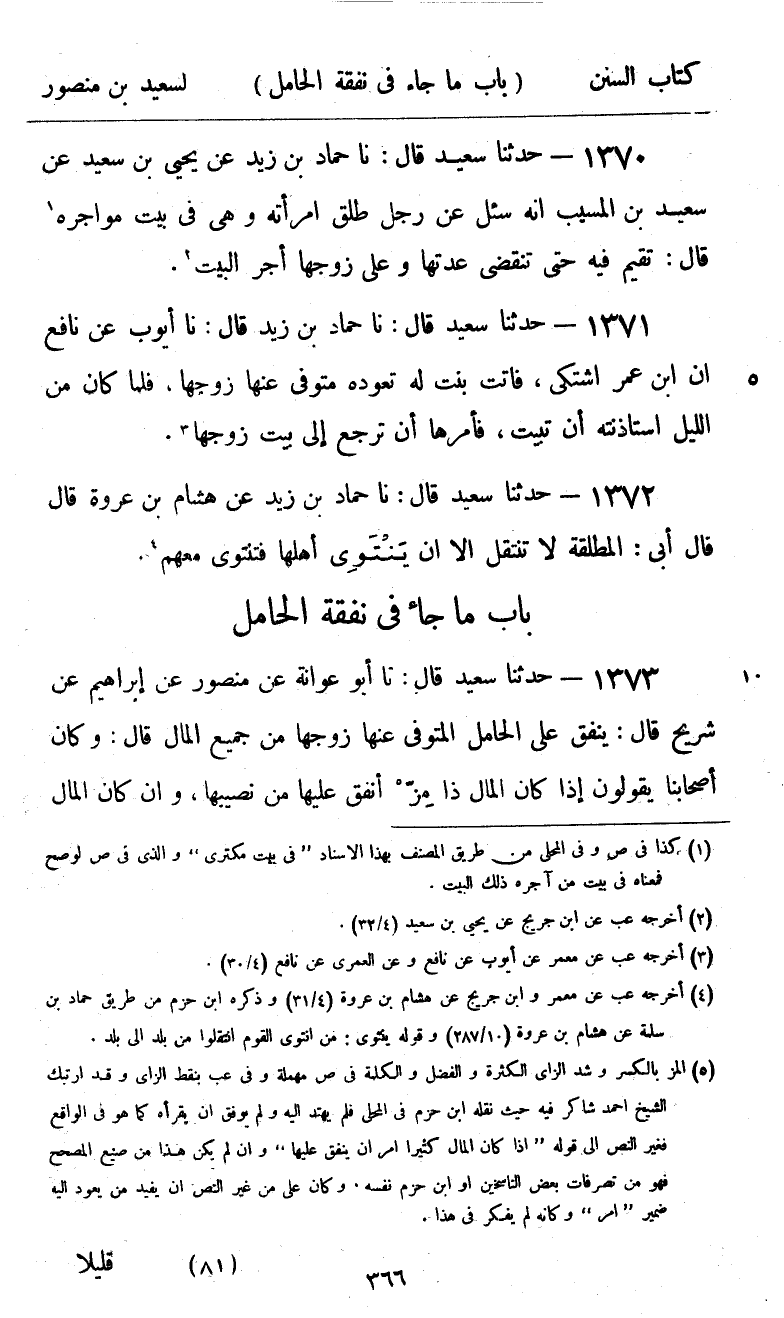 كتاب السنن ( باب ما جاء فى نفقة الحامل ) لسعيد بن منصور
١٣٧٠ – حدثنا سعيد قال : نا حماد بن زيد عن يحيى بن سعيد عن
سعيد بن المسيب انه سئل عن رجل طلق امرأته و هى فى بيت مواجره١
قال : تقيم فيه حتى تنقضى عدتها و على زوجها أجر البيت٢ .
١٣٧١ – حدثنا سعيد قال : نا حماد بن زيد قال : نا أيوب عن نافع
ان ابن عمر اشتكى ، فاتت بنت له تعوده متوفى عنها زوجها ، فلما كان من ٥
الليل استاذنته أن تبيت ، فأمرها أن ترجع إلى بيت زوجها٣ .
١٣٧٢ – حدثنا سعيد قال : نا حماد بن زيد عن هشام بن عروة قال
قال أبى : المطلقة لا تنتقل الا ان يَنْتَوِى أهلها فتنتوى معهم٤ .
باب ما جاء فى نفقة الحامل
١٣٧٣ – حدثنا سعيد قال : نا أبو عوانة عن منصور عن إبراهيم عن ١٠
شريح قال : ينفق على الحامل المتوفى عنها زوجها من جميع المال قال : و كان
أصحابنا يقولون إذا كان المال ذا مِزّ٥ أنفق عليها من نصيبها ، و ان كان المال
(١) كذا فى ص و فى المحلى من طريق المصنف بهذا الاسناد ” فى بيت مكترى “ و الذى فى ص لوصح
فمعناه فى بيت من آجره ذلك البيت .
(٢) أخرجه عب عن ابن جريج عن يحيى بن سعيد (٣٢/٤) .
(٣) أخرجه عب عن معمر عن أيوب عن نافع و عن العمرى عن نافع (٣٠/٤) .
(٤) أخرجه عب عن معمر و ابن جريج عن هشام بن عروة (٣١/٤) و ذكره ابن حزم من طريق حماد بن
سلمة عن هشام بن عروة (٢٨٧/١٠) و قوله ينتوى : من انتوى القوم انتقلوا من بلد الى بلد .
(٥) المز بالكسر و شد الزاى الكثرة و الفضل و الكلمة فى ص مهملة و فى عب بنقط الزاى و قد ارتبك
الشيخ احمد شاكر فيه حيث نقله ابن حزم فى المحلى فلم يهتد اليه و لم يوفق ان يقرأه كما هو فى الواقع
فغير النص الى قوله ” اذا كان المال كثيرا امر ان ينفق عليها “ و ان لم يكن هذا من صنيع المصحح
فهو من تصرفات بعض الناسخين او ابن حزم نفسه . و كان على من غير النص ان يفيد من يعود اليه
ضمير ” امر “ و كانه لم يفكر فى هذا .
(٨١) قليلا
٣٦٦